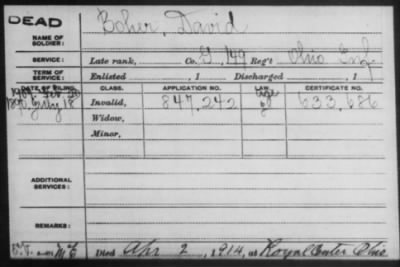 DEAD
Boher, David
NAME OF SOLDIER:
SERVICE: Late rank, Co. G, 149 Reg't Ohio Inf.
TERM OF SERVICE: Enlisted , 1 Discharged , 1
DATE OF FILING. CLASS. APPLICATION NO. LAW. CERTIFICATE NO.
1907, Feb. 20 age
July 18 Invalid, 847,242 633,686
Widow,
Minor,
ADDITIONAL SERVICES:
REMARKS:
Died Apr 2, 1914, at Royal Center Ohio